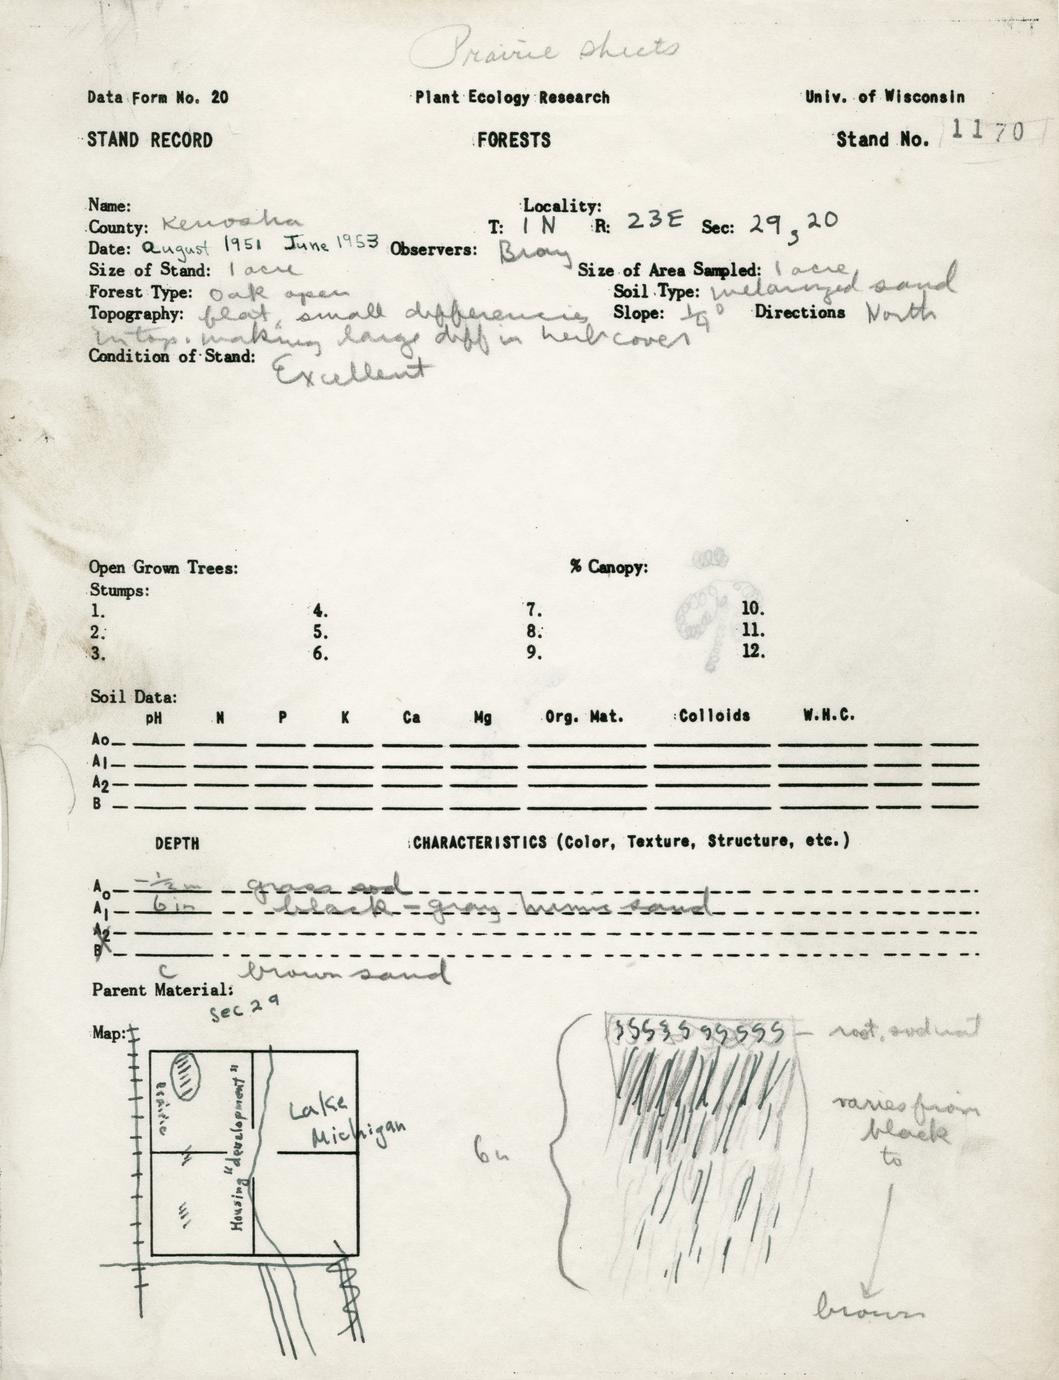 Prairie sheets
Data Form No. 20 Plant Ecology Research Univ. of Wisconsin
STAND RECORD FORESTS Stand No. 1170
Name: Locality:
County: Kenosha T: 1 N R: 23E Sec: 29, 20
Date: August 1951 June 1953 Observers: Bray
Size of Stand: 1 acre Size of Area Sampled: 1 acre
Forest Type: Oak open Soil Type: melanized sand
Topography: flat, small differencies Slope: Directions North
in top. making large diff in herb cover
Condition of Stand: Excellent
Open Grown Trees: % Canopy:
Stumps:
1. 4. 7. 10.
2. 5. 8. 11.
3. 6. 9. 12.
Soil Data:
pH N P K Ca Mg Org. Mat. Colloids W.H.C.
Ao
A1
A2
B
DEPTH CHARACTERISTICS (Color, Texture, Structure, etc.)
Ao -½ in grass sod
A1 6 in black - gray humic sand
A2
B
C brown sand
Parent Material:
Sec 29
Map:
Prairie
Housing "development"
Lake
Michigan
6 in
root, sod mat
varies from
black
to
brown